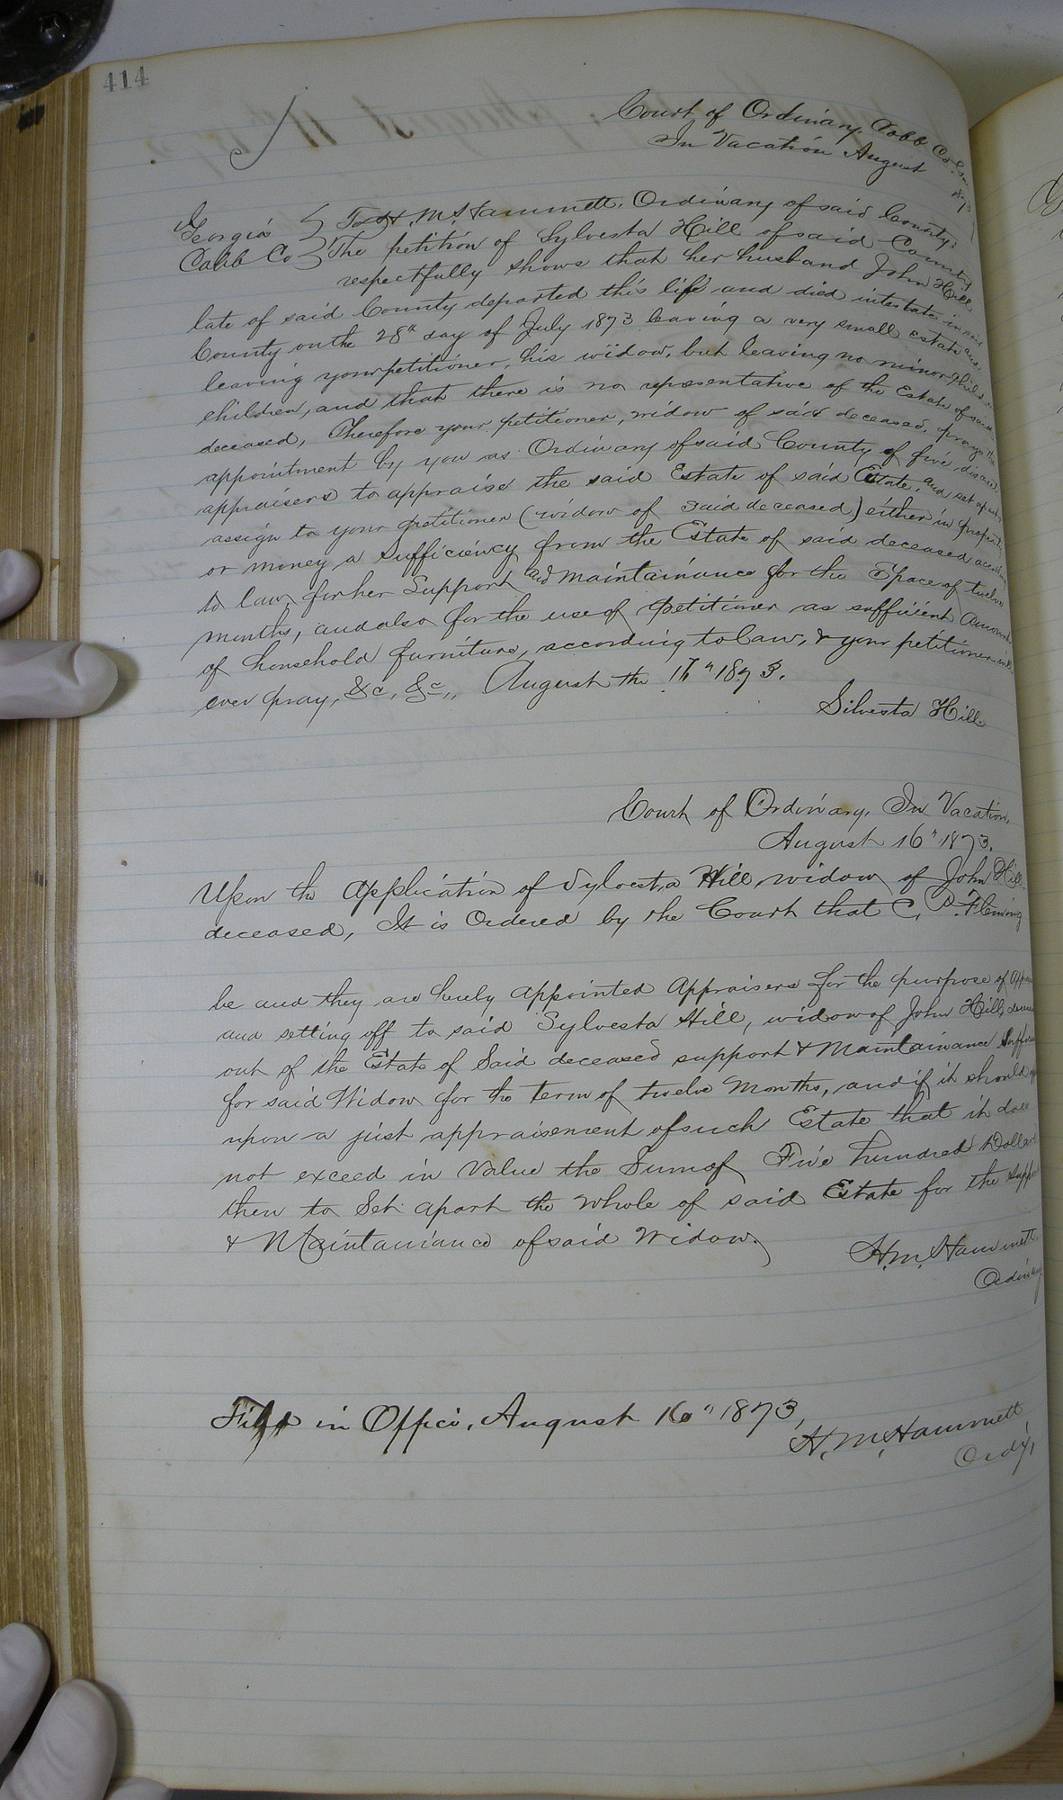 414
Court of Ordinary Cobb Co.
In Vacation August
Georgia To H. M. Hammett, Ordinary of said County:
Cobb Co The petition of Sylvesta Hill of said County
respectfully shows that her husband John Hill
late of said County departed this life and died intestate in said
County on the 28th day of July 1873 leaving a very small estate and
leaving your petitioner, his widow, but leaving no minor
children, and that there is no representative of the Estate of said
deceased, Therefore your petitioner, widow of said deceased, prays the
appointment by you as Ordinary of said County of five
appraisers to appraise the said Estate of said Estate, and set apart &
assign to your petitioner (widow of said deceased) either in property
or money a sufficiency from the Estate of said deceased
to law, for her Support and maintainance for the Space of twelve
months, and also for the use of petitioner a sufficient Amount
of household furniture, according to law, & your petitioner will
ever pray, &c, &c,, August the 1873.
Silvesta Hill
Court of Ordinary, In Vacation,
August 16" 1873.
Upon the Application of Sylvesta Hill widow of John Hill
deceased, It is Ordered by the Court that C. P. Fleming
be and they are herely Appointed Appraisers for the purpose of
and setting off to said Sylvesta Hill, widow of John Hill,
out of the Estate of Said deceased support & Maintainance
for said Widow for the term of twelve Months, and if it should
upon a just appraisement of such Estate that it does
not exceed in Value the Sum of Five hundred Dollars
then to Set apart the whole of said Estate for the
& Maintainance of said Widow.
H. M. Hammett
Ordinary
in Office, August 16" 1873,
H. M. Hammett
Ordy,